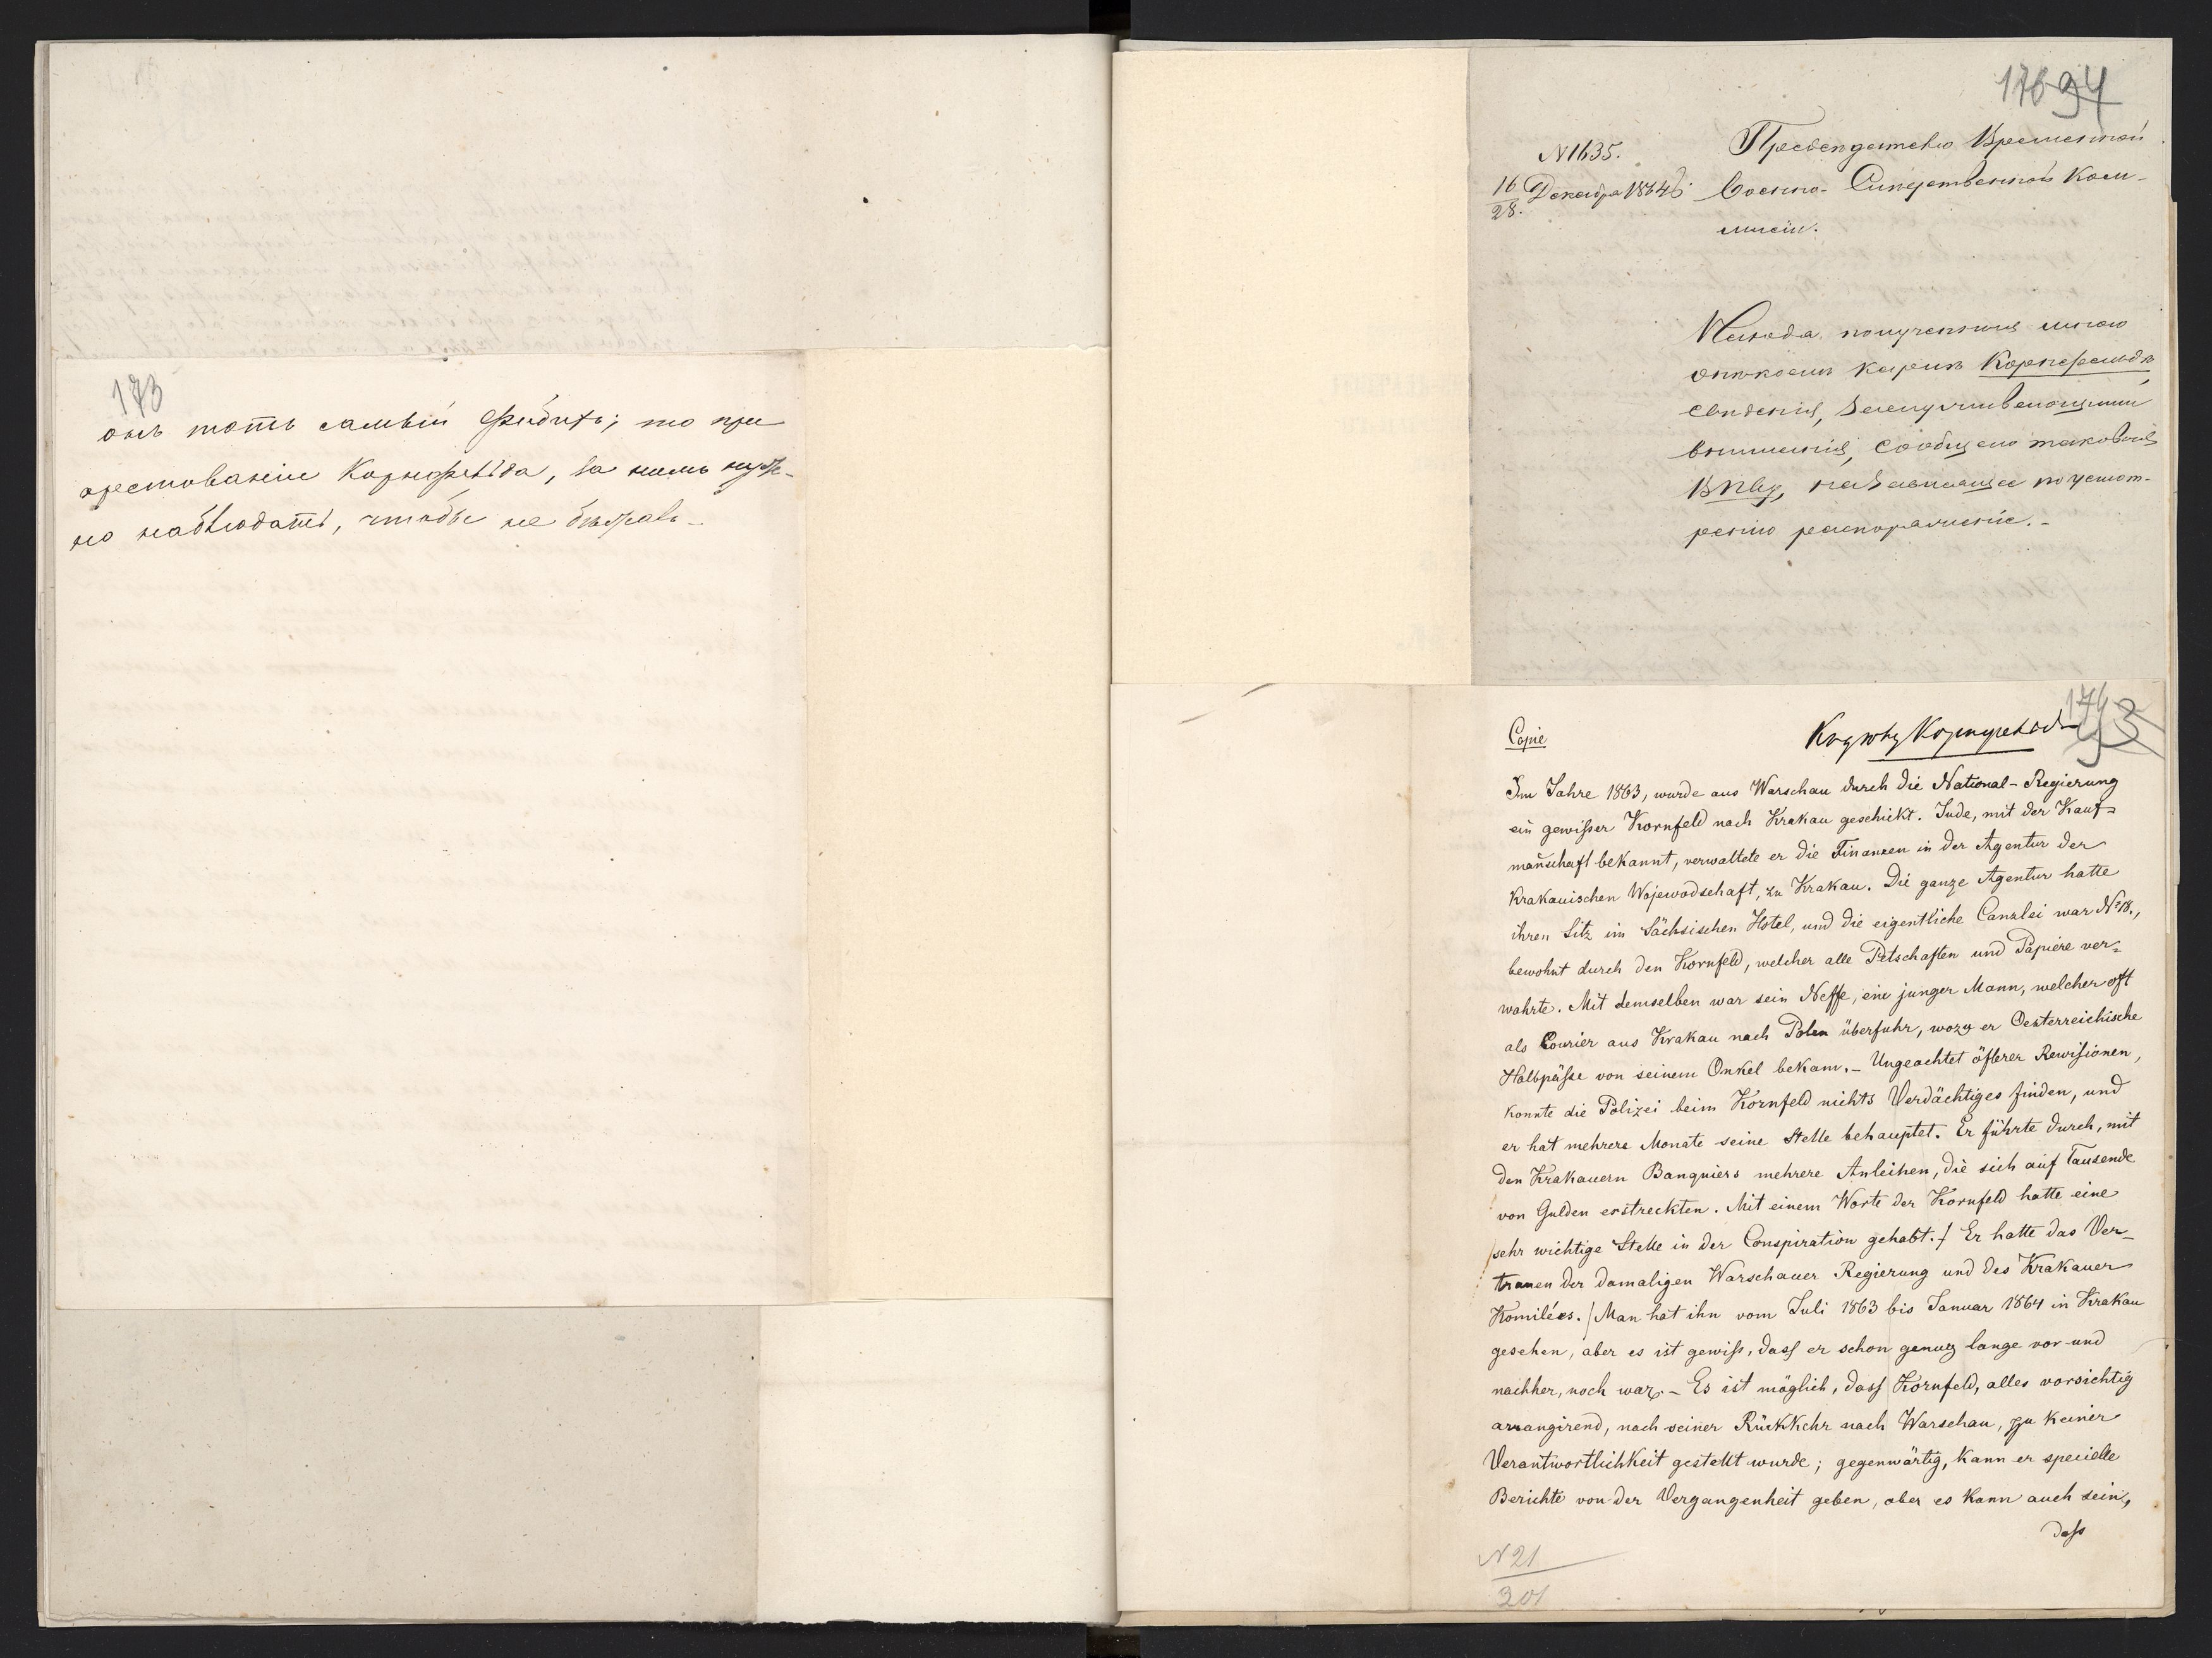 173
онъ тотъ самый то при
арестованіи Корнфельда, за нимъ нуж-
но наблюдать, чтобы не бѣжалъ.
176 94
N 1635.
16/28. Декабря 1864 г.
Временной
Военно- Слѣдственной Ком-
мисіи.
полученныя мною
Корнфельдѣ
свѣденія, заслуживающими
вниманія, сообщаю таковыя
на зависящее по усмот-
рѣнію распоряженіе.-
174 93
Copie
Im Jahre 1863, wurde aus Warschau durch die National-Regierung
ein gewißer Kornfeld nach Krakau geschickt. Jude, mit der Kauf=
mañschaft bekannt, verwaltete er die Finanzen in der Agentur der
Krakauischen Wojewodschaft, zu Krakau. Die ganze Agentur hatte
ihren Sitz im Sächsischen Hotel, und die eigentliche Canzlei war No 18.,
bewohnt durch den Kornfeld, welcher alle Petschaften und Papiere ver=
wahrte. Mit demselben war sein Neffe, ein junger Mann, welcher oft
als Courier aus Krakau nach Polen überfuhr, wozu er Oesterreichische
Halbpäße von seinem Onkel bekam.- Ungeachtet öfterer Rewisionen,
konnte die Polizei beim Kornfeld nichts Verdächtiges finden, und
er hat mehrere Monate seine Stelle behauptet. Er führte durch, mit
den Krakauern Banquiers mehrere Anleihen, die sich auf Tausende
von Gulden erstreckten. Mit einem Worte der Kornfeld hatte eine
sehr wichtige Stelle in der Conspiration gehabt. Er hatte das Ver-
trauen der damaligen Warschauer Regierung und des Krakauer
Komitées. Man hat ihn vom Juli 1863 bis Januar 1864 in Krakau
gesehen, aber es ist gewiß, dass er schon genug lange vor und
nachher, noch war.- Es ist möglich, dass Kornfeld, alles vorsichtig
arrangirend, nach seiner Rückkehr nach Warschau, zu keiner
Verantwortlichkeit gestellt wurde; gegenwärtig, kann er specielle
Berichte von der Vergangenheit geben, aber es kann auch sein,
daß
N 21
201